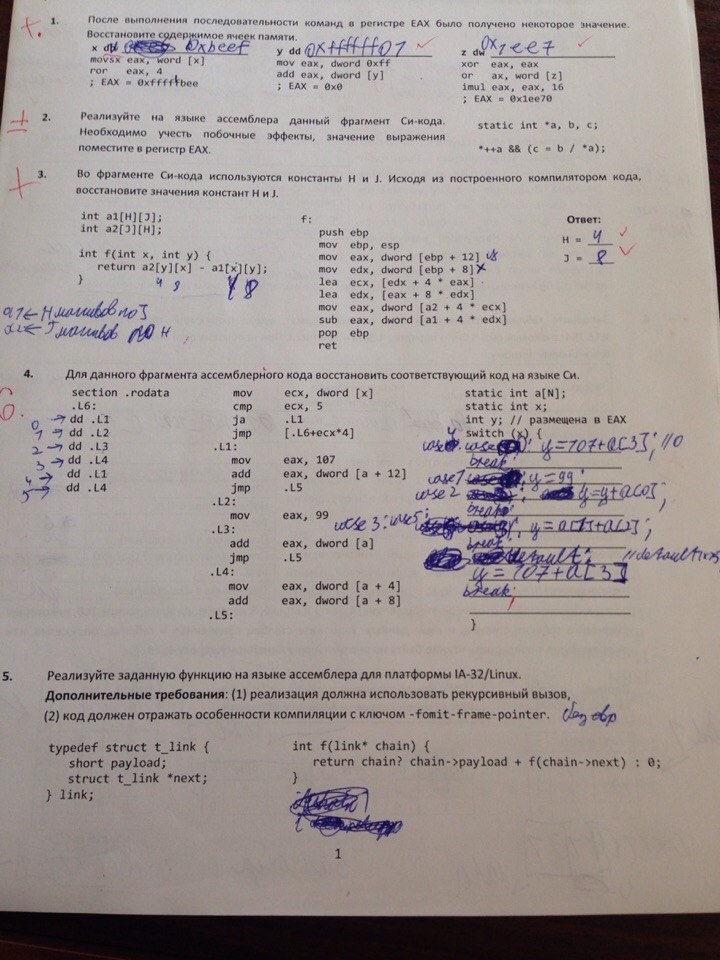 1. После выполнения последовательности команд в регистре EAX было получено некоторое значение.
Восстановите содержимое ячеек памяти.
x dw 0xbeef
movsx eax, word [x]
ror eax, 4
; EAX = 0xfffffbee
y dd 0xffffff01
mov eax, dword 0xff
add eax, dword [y]
; EAX = 0x0
z dw 0x1ee7
xor eax, eax
or ax, word [z]
imul eax, eax, 16
; EAX = 0x1ee70
2. Реализуйте на языке ассемблера данный фрагмент Си-кода.
Необходимо учесть побочные эффекты, значение выражения
поместите в регистр EAX.
static int *a, b, c;
*++a && (c = b / *a);
3. Во фрагменте Си-кода используются константы H и J. Исходя из построенного компилятором кода,
восстановите значения констант H и J.
int a1[H][J];
int a2[J][H];
int f(int x, int y) {
return a2[y][x] - a1[x][y];
}
4 8
4 8
a1 ← H массивов по J
J массивов по H
f:
push ebp
mov ebp, esp
mov eax, dword [ebp + 12] y
mov edx, dword [ebp + 8] x
lea ecx, [edx + 4 * eax]
lea edx, [eax + 8 * edx]
mov eax, dword [a2 + 4 * ecx]
sub eax, dword [a1 + 4 * edx]
pop ebp
ret
Ответ:
H = 4
J = 8
4. Для данного фрагмента ассемблерного кода восстановить соответствующий код на языке Си.
section .rodata
.L6:
0 → dd .L1
1 → dd .L2
2 → dd .L3
3 → dd .L4
4 → dd .L1
5 → dd .L4
mov ecx, dword [x]
cmp ecx, 5
ja .L1
jmp [.L6+ecx*4]
.L1:
mov eax, 107
add eax, dword [a + 12]
jmp .L5
.L2:
mov eax, 99
.L3:
add eax, dword [a]
jmp .L5
.L4:
mov eax, dword [a + 4]
add eax, dword [a + 8]
.L5:
static int a[N];
static int x;
int y; // размещена в EAX
switch (x) {
y=107+a[3]; //0
break;
case 1 y=99
case 2 y=y+a[0];
break;
case 3: case 5: y=a[1]+a[2];
break;
default:
y = 107+a[3]
break;
}
5. Реализуйте заданную функцию на языке ассемблера для платформы IA-32/Linux.
Дополнительные требования: (1) реализация должна использовать рекурсивный вызов,
(2) код должен отражать особенности компиляции с ключом -fomit-frame-pointer. без ebp
typedef struct t_link {
short payload;
struct t_link *next;
} link;
int f(link* chain) {
return chain? chain->payload + f(chain->next) : 0;
}
1